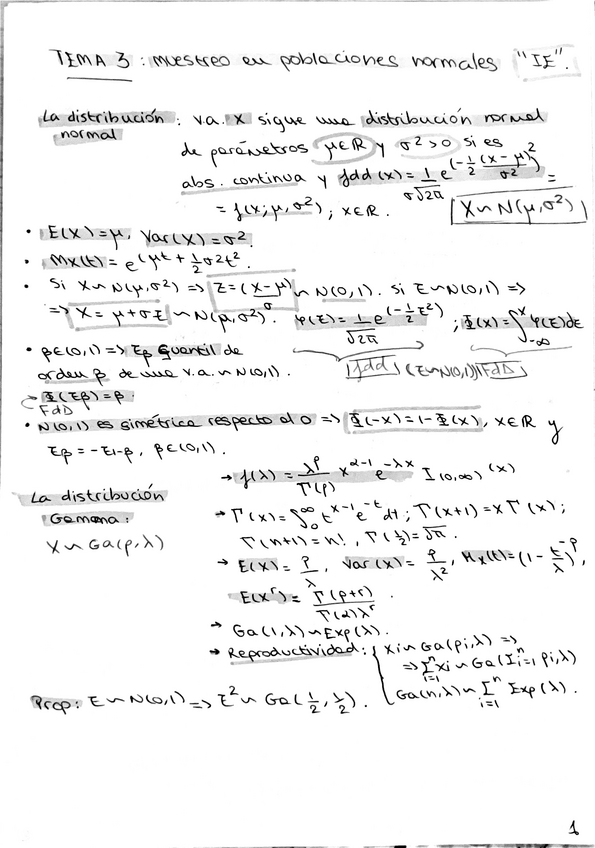 TEMA 3 : muestreo en poblaciones normales "IE".
La distribución normal : v.a. X sigue una distribución normal
de parámetros μ∈ℝ y σ²>0 si es
abs. continua y fdd(x) = 1/(σ√2π) e^(-1/2 (x-μ)²/σ²) =
= f(x; μ, σ²); x∈ℝ. X~N(μ,σ²)
• E(X)=μ, Var(X)=σ².
• Mx(t) = e^(μt + 1/2 σ²t².
• Si X~N(μ,σ²) => Z = (X-μ)/σ ~ N(0,1). Si Z~N(0,1) =>
=> X = μ+σZ ~ N(μ,σ²). φ(z) = 1/√2π e^(-1/2 z²) ; Φ(x) = ∫_-∞^x φ(z)dz
• β∈(0,1) => Zβ cuantil de
orden β de una v.a. ~ N(0,1). fdd (Z~N(0,1)) FdD
→ Φ(Zβ) = β.
FdD
• N(0,1) es simétrica respecto al 0 => Φ(-x) = 1-Φ(x), x∈ℝ y
Zβ = -Z1-β, β∈(0,1).
La distribución
Gamma:
X~Ga(p,λ)
→ f(λ) = λ^p/Γ(p) x^(α-1) e^(-λx) I(0,∞)(x)
→ Γ(x) = ∫_0^∞ t^(x-1) e^(-t) dt ; Γ(x+1) = xΓ(x) ;
Γ(n+1) = n! , Γ(1/2) = √π.
→ E(X) = p/λ, Var(X) = p/λ², Mx(t) = (1 - t/λ)^-p,
E(X^r) = Γ(p+r)/(Γ(α)λ^r)
→ Ga(1,λ) ~ Exp(λ).
→ Reproductividad: { Xi ~ Ga(pi,λ) =>
=> Σ_i=1^n Xi ~ Ga(Σ_i=1^n pi,λ)
Ga(n,λ) ~ Σ_i=1^n Exp(λ).
Prop: Z~N(0,1) => Z² ~ Ga(1/2, λ/2).
1